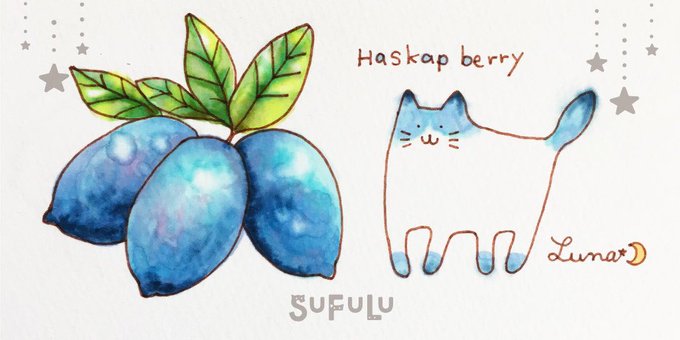 Haskap berry
Luna
SUFULU